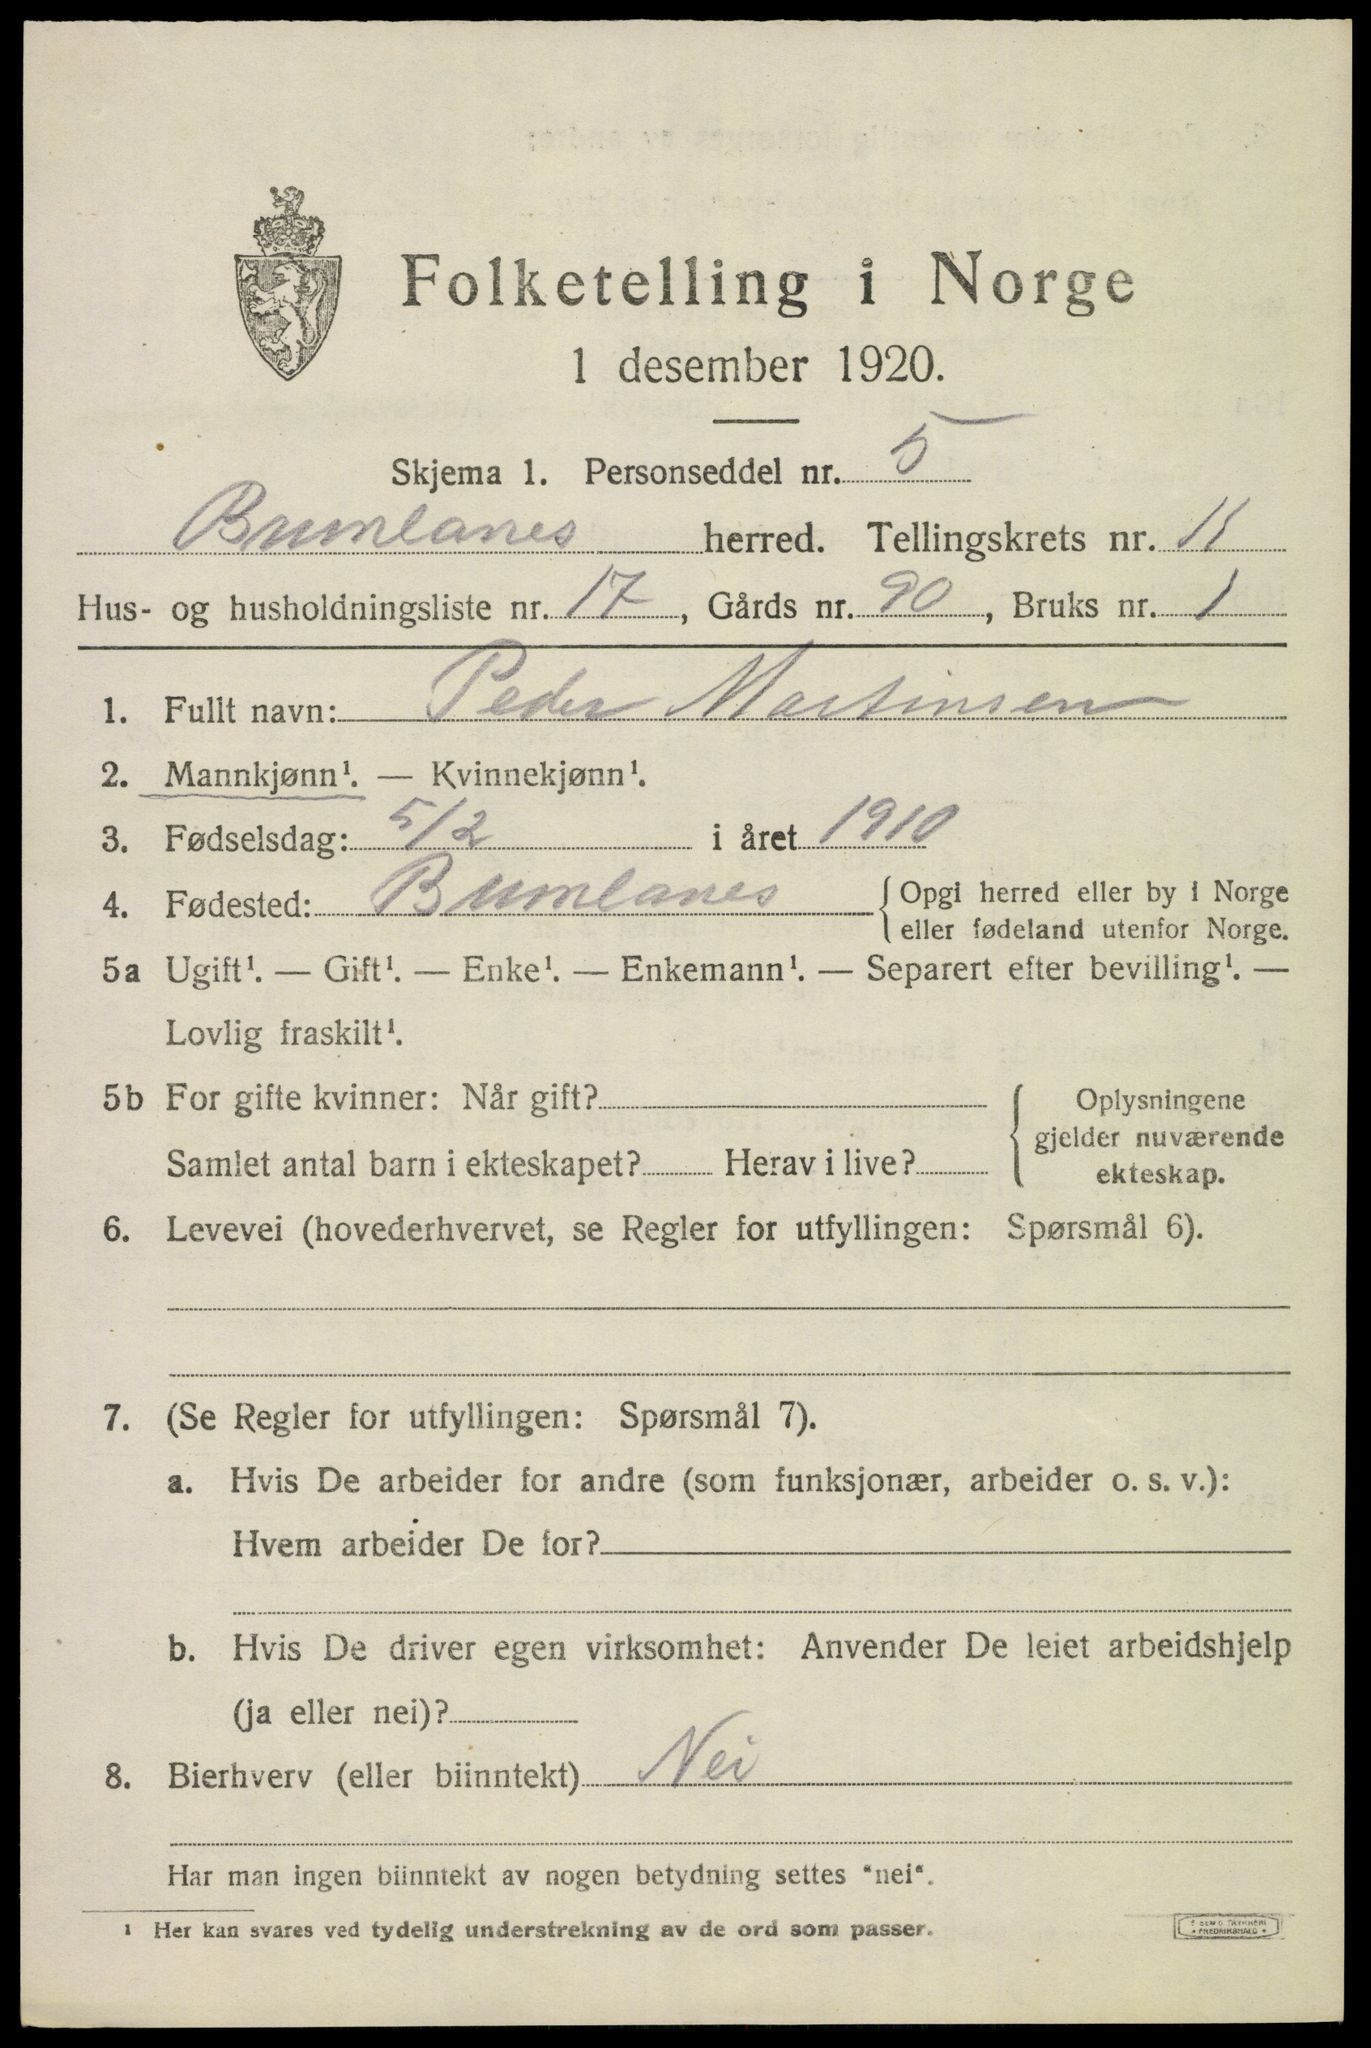 Folketelling i Norge
1 desember 1920.
Skjema 1. Personseddel nr. 5
Brunlanes herred. Tellingskrets nr. 11
Hus- og husholdningsliste nr. 17, Gårds nr. 90, Bruks nr. 1
1. Fullt navn: Peder Martinsen
2. Mannkjønn¹. — Kvinnekjønn¹.
3. Fødselsdag: 5/2 i året 1910
4. Fødested: Brunlanes { Opgi herred eller by i Norge
eller fødeland utenfor Norge.
5a Ugift¹. — Gift¹. — Enke¹. — Enkemann¹. — Separert efter bevilling¹. —
Lovlig fraskilt¹.
5b For gifte kvinner: Når gift? { Oplysningene
gjelder nuværende
Samlet antal barn i ekteskapet? Herav i live? ekteskap.
6. Levevei (hovederhvervet, se Regler for utfyllingen: Spørsmål 6).
7. (Se Regler for utfyllingen: Spørsmål 7).
a. Hvis De arbeider for andre (som funksjonær, arbeider o. s. v.):
Hvem arbeider De for?
b. Hvis De driver egen virksomhet: Anvender De leiet arbeidshjelp
(ja eller nei)?
8. Bierhverv (eller biinntekt) Nei
Har man ingen biinntekt av nogen betydning settes "nei".
¹ Her kan svares ved tydelig understrekning av de ord som passer.